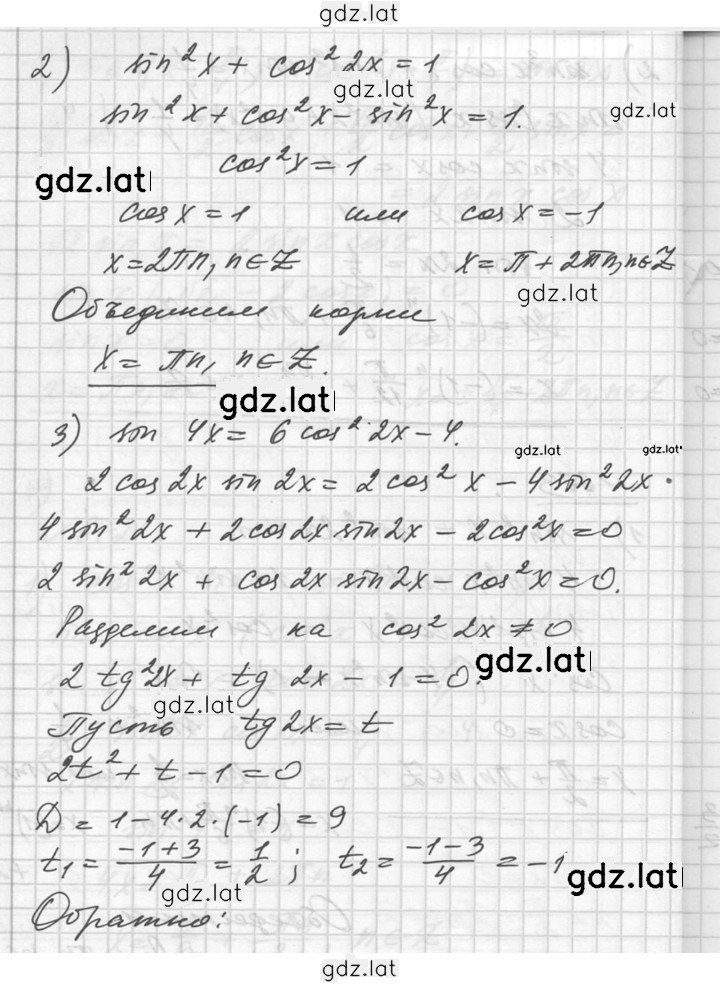 gdz.lat
2) sin²x + cos²2x = 1
gdz.lat
sin²x + cos²x - sin²x = 1.
gdz.lat
cos²x = 1
gdz.lat
cosx = 1 или cosx = -1
x = 2πn, n∈Z x = π + 2πn, n∈Z
gdz.lat
Объединим корни
x = πn, n∈Z.
gdz.lat
3) sin 4x = 6 cos²2x - 4.
gdz.lat gdz.lat
2 cos 2x sin 2x = 2 cos²x - 4 sin²2x.
4 sin²2x + 2 cos2x sin2x - 2cos²x = 0
2 sin²2x + cos 2x sin2x - cos²x = 0.
Разделим на cos²2x ≠ 0
gdz.lat
2 tg²2x + tg 2x - 1 = 0.
gdz.lat
Пусть tg2x = t
2t² + t - 1 = 0
D = 1 - 4·2·(-1) = 9
t₁ = (-1+3)/4 = 1/2 ; t₂ = (-1-3)/4 = -1
gdz.lat gdz.lat
Обратно:
gdz.lat